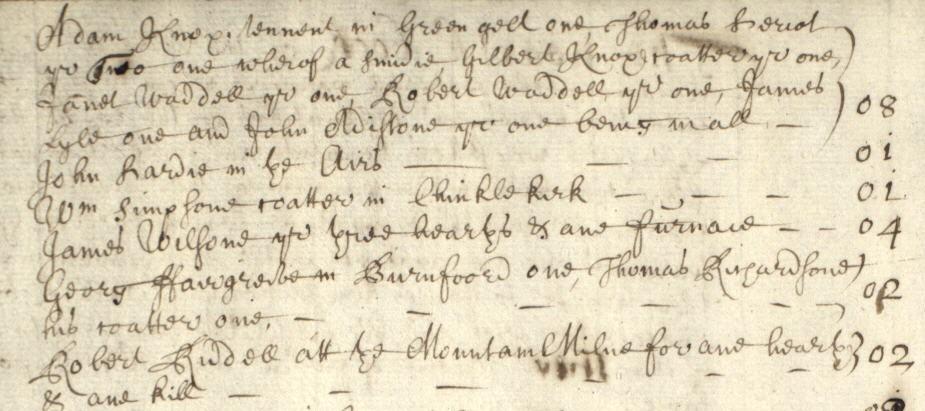 Adam Knox tennent in Greengelt one, Thomas Heriot
yr Two one wherof a smidie Gilbert Knox coatter yr one,
Janet Waddell yr one, Robert Waddell yr one, James
Lyle one and John Adistone yr one being in all – 08
John Hardie in ye Airs — — — 01
Wm Simpsone coatter in Chinklekirk – – – 01
James Wilsone yr yree hearths & ane furnace – – 04
Georg ffairgreive in Burnfoord one, Thomas Richardsone
his coatter one, – – – – – – 02
Robert Riddell att ye Mountam Milne for ane hearth 02
& ane kill – – – –